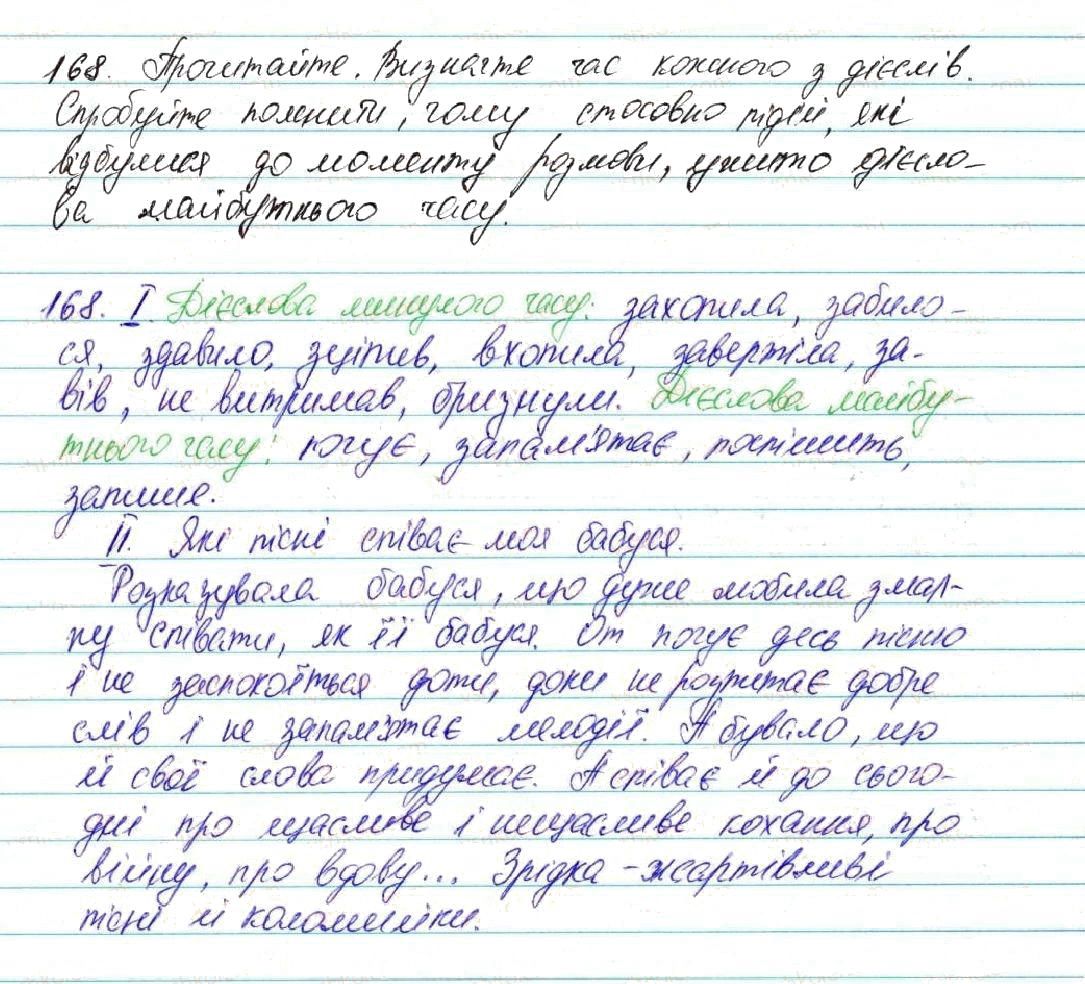 168. Прочитайте. Визначте час кожного з дієслів.
Спробуйте пояснити, чому стосовно подій, які
відбулися до моменту розмови, ужито дієсло-
ва майбутнього часу.
168. I. Дієслова минулого часу: захопила, забило-
ся, здавило, зціпив, вхопила, завертіла, за-
вів, не витримав, бризнули. Дієслова майбу-
тнього часу: почує, запам'ятає, поспішить,
запише.
II. Які пісні співає моя бабуся.
Розказувала бабуся, що дуже любила змал-
ку співати, як її бабуся. От почує десь пісню
і не заспокоїться доти, доки не розпитає добре
слів і не запам'ятає мелодії. А бувало, що
й свої слова придумає. А співає й до сього-
дні про щасливе і нещасливе кохання, про
війну, про вдову... Зрідка - жартівливі
пісні й коломийки.